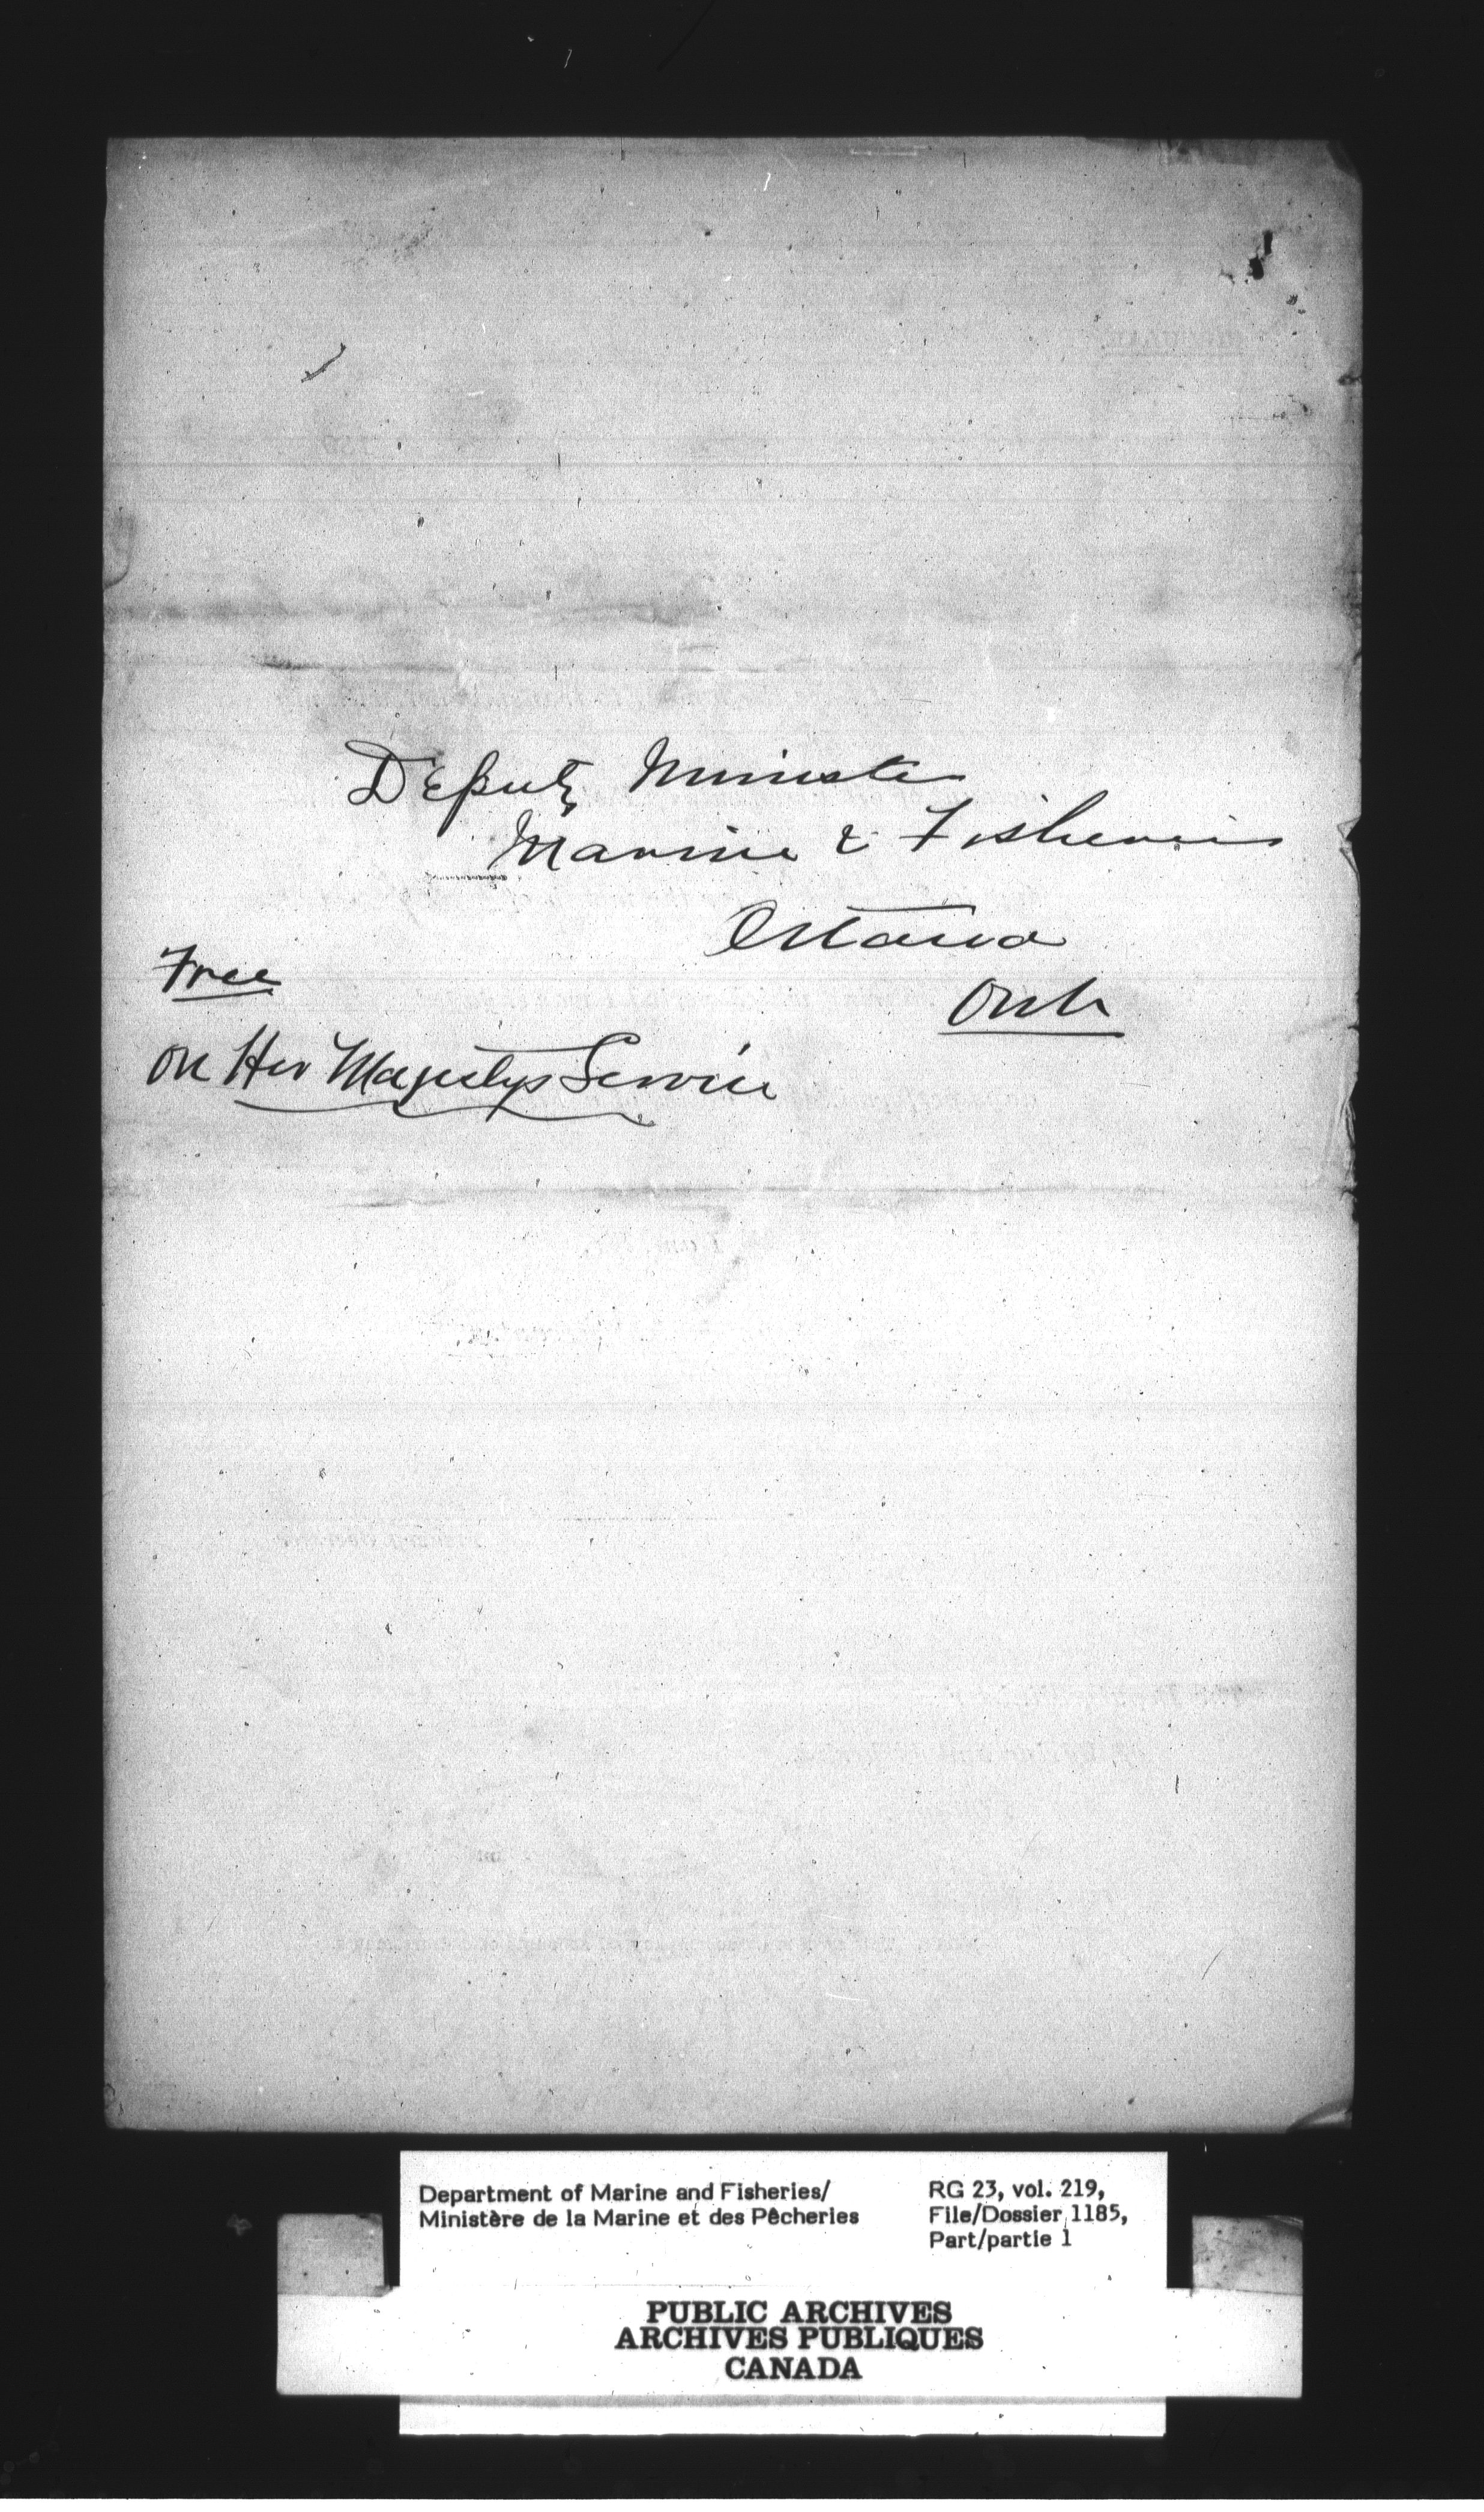 Deputy Minister
Marine & Fisheries
Ottawa
Ont
Free
On Her Majestys Service
Department of Marine and Fisheries/
Ministère de la Marine et des Pêcheries
RG 23, vol. 219,
File/Dossier 1185,
Part/partie 1
PUBLIC ARCHIVES
ARCHIVES PUBLIQUES
CANADA